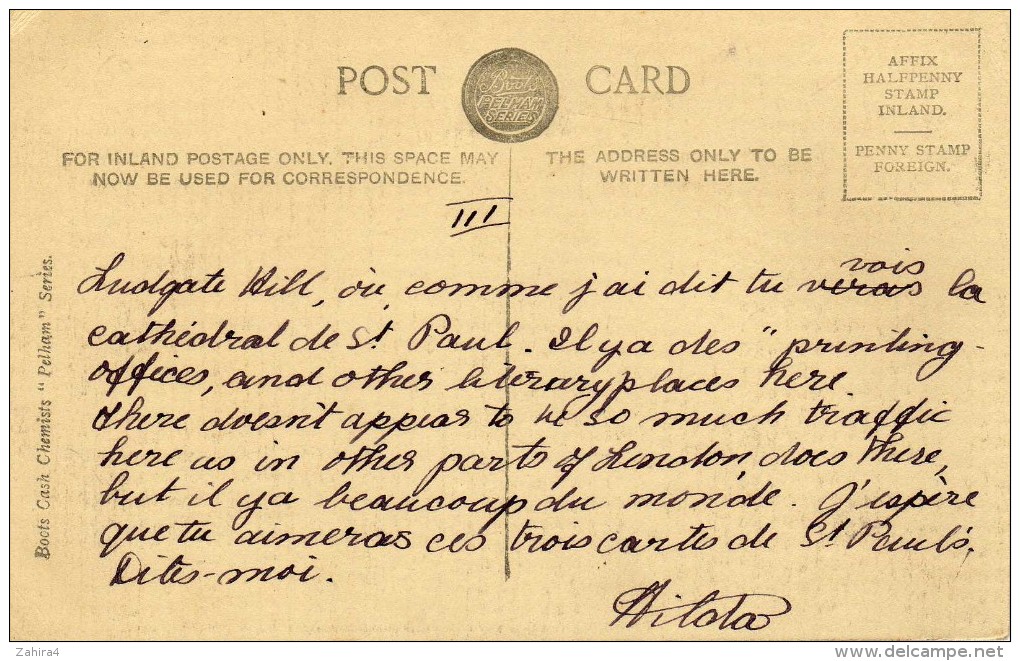 POST CARD
Boots
PELHAM
SERIES
AFFIX
HALFPENNY
STAMP
INLAND.
PENNY STAMP
FOREIGN.
FOR INLAND POSTAGE ONLY. THIS SPACE MAY
NOW BE USED FOR CORRESPONDENCE.
THE ADDRESS ONLY TO BE
WRITTEN HERE.
III
Ludgate Hill, où, comme j'ai dit tu veras vois la
cathédral de St Paul. Il y a des "printing-
offices, and other literary places here.
There doesn't appear to be so much traffic
here as in other parts of London, does there,
but il y a beaucoup du monde. J'espère
que tu aimeras ces trois cartes de St Paul's.
Dites-moi.
Hilda
Boots Cash Chemists "Pelham" Series.
Zahira4
delcampe.net